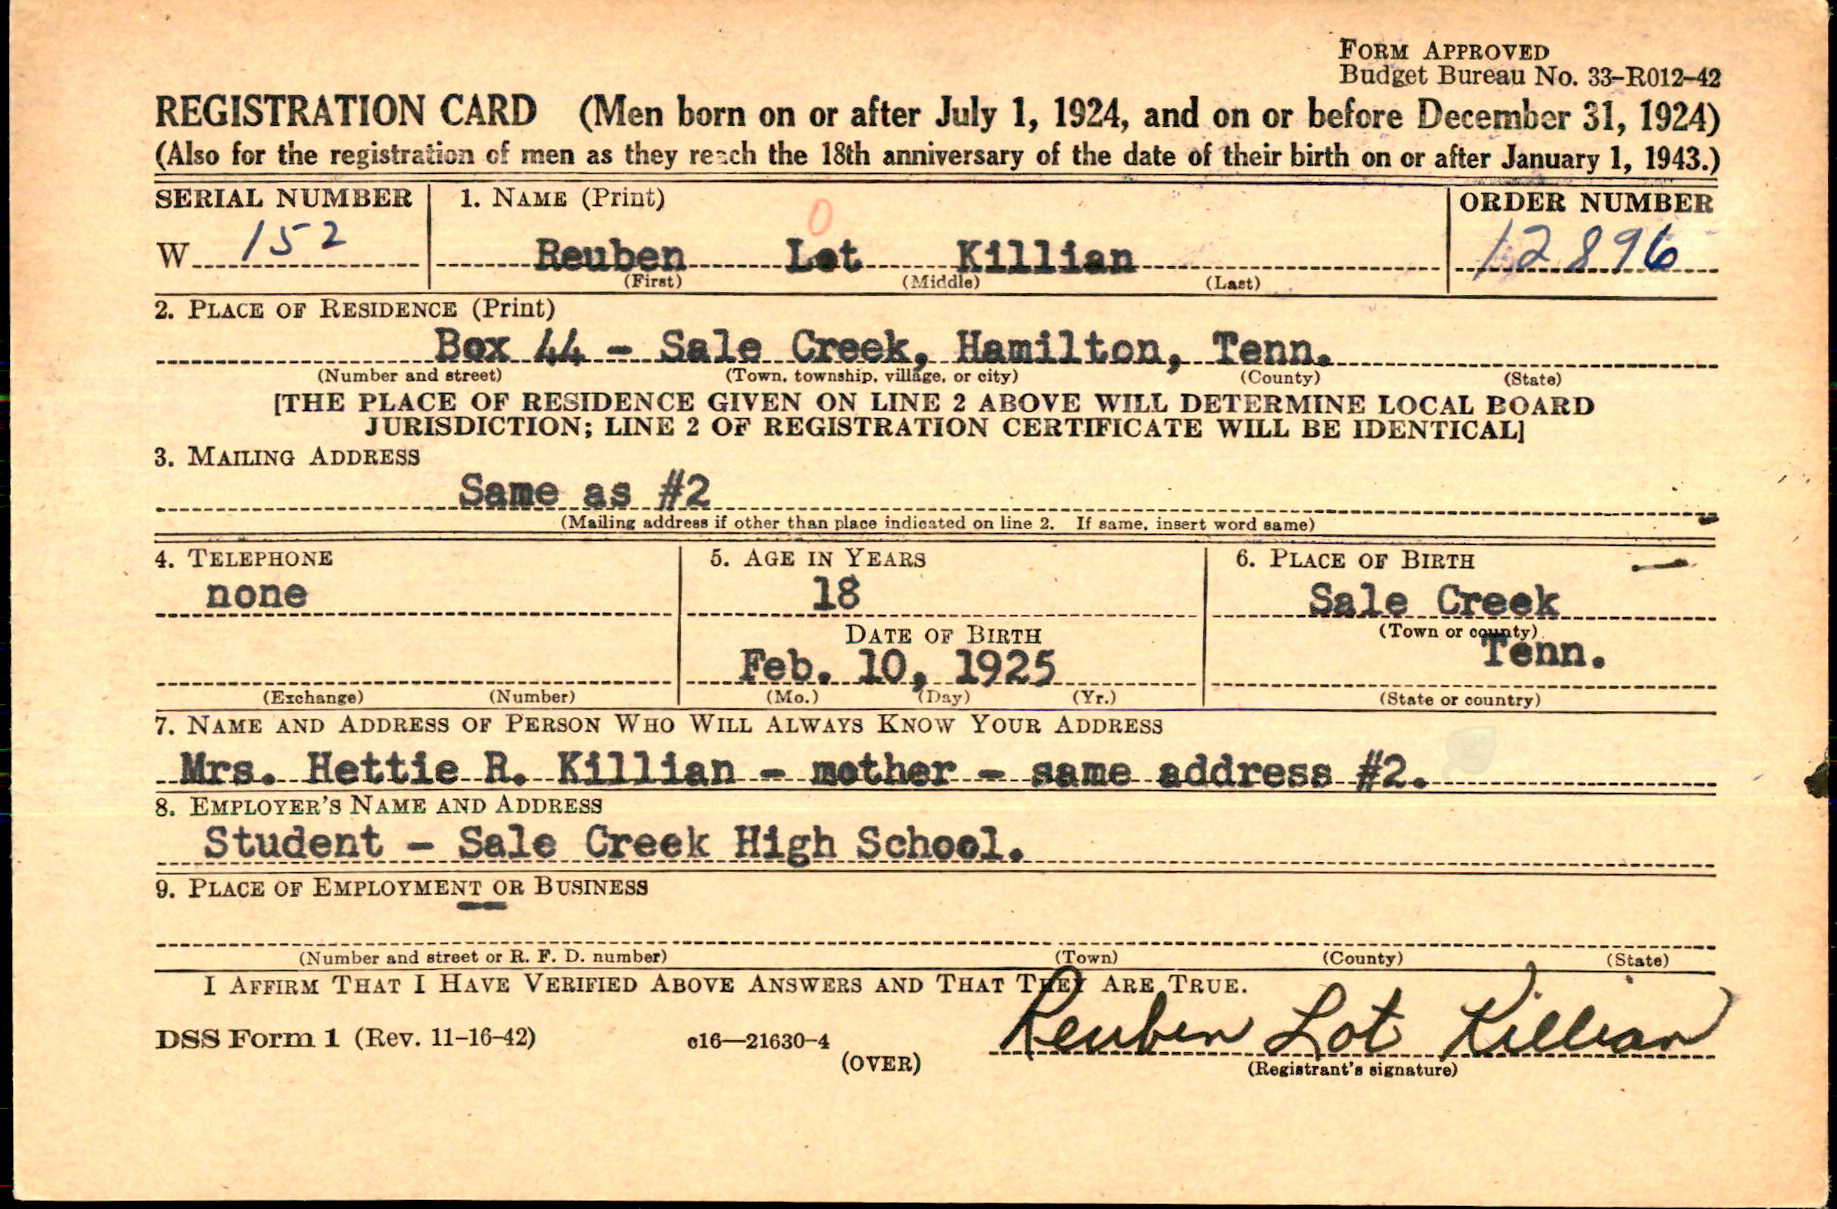 FORM APPROVED
Budget Bureau No. 33-R012-42
REGISTRATION CARD (Men born on or after July 1, 1924, and on or before December 31, 1924)
(Also for the registration of men as they reach the 18th anniversary of the date of their birth on or after January 1, 1943.)
SERIAL NUMBER 1. NAME (Print) ORDER NUMBER
O
W 152 Reuben Lot Killian 12896
(First) (Middle) (Last)
2. PLACE OF RESIDENCE (Print)
Box 44 - Sale Creek, Hamilton, Tenn.
(Number and street) (Town, township, village, or city) (County) (State)
[THE PLACE OF RESIDENCE GIVEN ON LINE 2 ABOVE WILL DETERMINE LOCAL BOARD
JURISDICTION; LINE 2 OF REGISTRATION CERTIFICATE WILL BE IDENTICAL]
3. MAILING ADDRESS
Same as #2
(Mailing address if other than place indicated on line 2. If same, insert word same)
4. TELEPHONE 5. AGE IN YEARS 6. PLACE OF BIRTH
none 18 Sale Creek
DATE OF BIRTH (Town or county)
Feb. 10, 1925 Tenn.
(Exchange) (Number) (Mo.) (Day) (Yr.) (State or country)
7. NAME AND ADDRESS OF PERSON WHO WILL ALWAYS KNOW YOUR ADDRESS
Mrs. Hettie R. Killian - mother - same address #2.
8. EMPLOYER'S NAME AND ADDRESS
Student - Sale Creek High School.
9. PLACE OF EMPLOYMENT OR BUSINESS
(Number and street or R. F. D. number) (Town) (County) (State)
I AFFIRM THAT I HAVE VERIFIED ABOVE ANSWERS AND THAT THEY ARE TRUE.
DSS Form 1 (Rev. 11-16-42) c16—21630-4 Reuben Lot Killian
(OVER) (Registrant's signature)